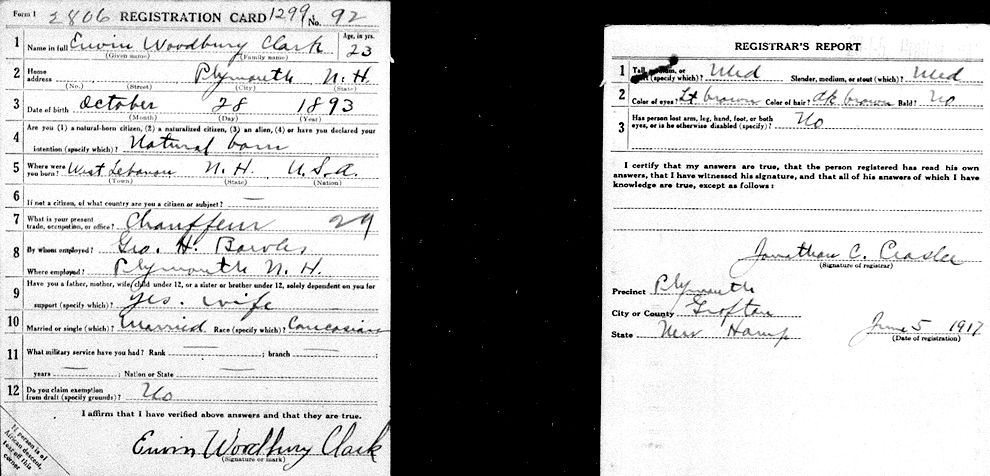 Form 1 2806 REGISTRATION CARD 1299 No. 92
1 Name in full Erwin Woodbury Clark Age, in yrs. 23
(Given name) (Family name)
2 Home address Plymouth N.H.
(No.) (Street) (City) (State)
3 Date of birth October 28 1893
(Month) (Day) (Year)
4 Are you (1) a natural-born citizen, (2) a naturalized citizen, (3) an alien, (4) or have you declared your
intention (specify which)? Natural born
5 Where were you born? West Lebanon N.H. U.S.A.
(Town) (State) (Nation)
6 If not a citizen, of what country are you a citizen or subject? —
7 What is your present trade, occupation, or office? Chauffeur 29
8 By whom employed? Geo. H. Bowles
Where employed? Plymouth N.H.
9 Have you a father, mother, wife, child under 12, or a sister or brother under 12, solely dependent on you for
support (specify which)? Yes. wife
10 Married or single (which)? Married Race (specify which)? Caucasian
11 What military service have you had? Rank — ; branch —
years — ; Nation or State —
12 Do you claim exemption from draft (specify grounds)? No
I affirm that I have verified above answers and that they are true.
Erwin Woodbury Clark
(Signature or mark)
If person is of
African descent,
tear off this
corner
REGISTRAR'S REPORT
1 Tall, medium, or short (specify which)? Med Slender, medium, or stout (which)? Med
2 Color of eyes? Lt brown Color of hair? dk brown Bald? No
3 Has person lost arm, leg, hand, foot, or both
eyes, or is he otherwise disabled (specify)? No
I certify that my answers are true, that the person registered has read his own
answers, that I have witnessed his signature, and that all of his answers of which I have
knowledge are true, except as follows:
Jonathan C.
(Signature of registrar)
Precinct Plymouth
City or County Grafton
State New Hamp June 5 1917
(Date of registration)